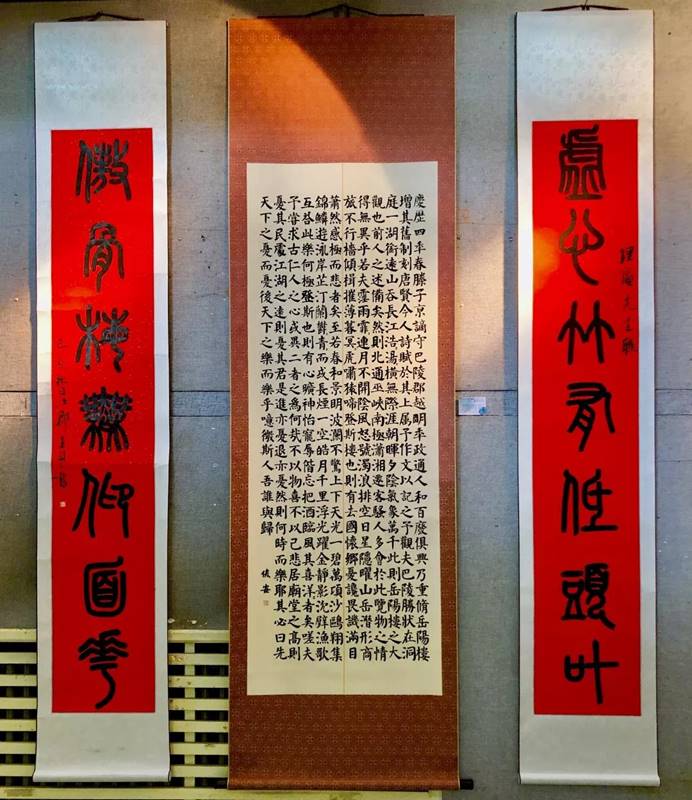 虛心竹有低頭叶
慶歷四年春滕子京謫守巴陵郡越明年政通人和百廢俱興乃重脩岳陽樓
增其舊制刻唐賢今人詩賦於其上属予作文以記之予觀夫巴陵勝状在洞
庭一湖銜遠山吞長江浩湯橫無際涯朝暉夕陰氣象萬千此則岳陽樓之大
觀也前人之述備矣然則北通巫峽南極瀟湘遷客騷人多會於此覽物之情
得無異乎若夫霪雨霏連月不開陰風怒號濁浪排空日星隱曜山岳潛形商
旅不行檣傾楫摧薄暮冥虎嘯猿啼登斯樓也則有去國懷鄉憂讒畏譏滿目
蕭然感極而悲者矣至若春和景明波瀾不驚上下天光一碧萬頃沙鷗翔集
錦鱗遊泳岸芷汀蘭鬱青而或長煙一空皓月千里浮光躍金靜影沈璧漁歌
互荅此樂何極登斯也則有心曠神怡寵辱偕忘把酒臨風其喜洋者矣嗟夫
予嘗求古仁人之心或異二者之為何哉不以物喜不以己悲居廟堂之高則
憂其民處江湖之遠則憂其君是進亦憂退亦憂然則何時而樂耶其必曰先
天下之憂而憂後天下之樂而樂乎噫微斯人吾誰與歸
傲骨梅無仰面花